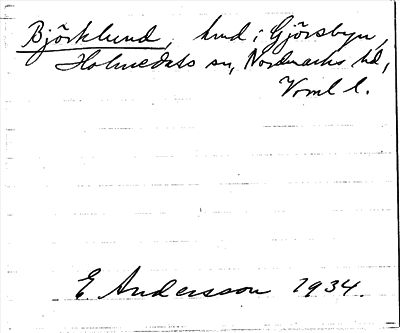 Björklund, hmd i Gjörsbyn,
Holmedals sn, Nordmarks hd,
Vrml l.
E Andersson 1934.